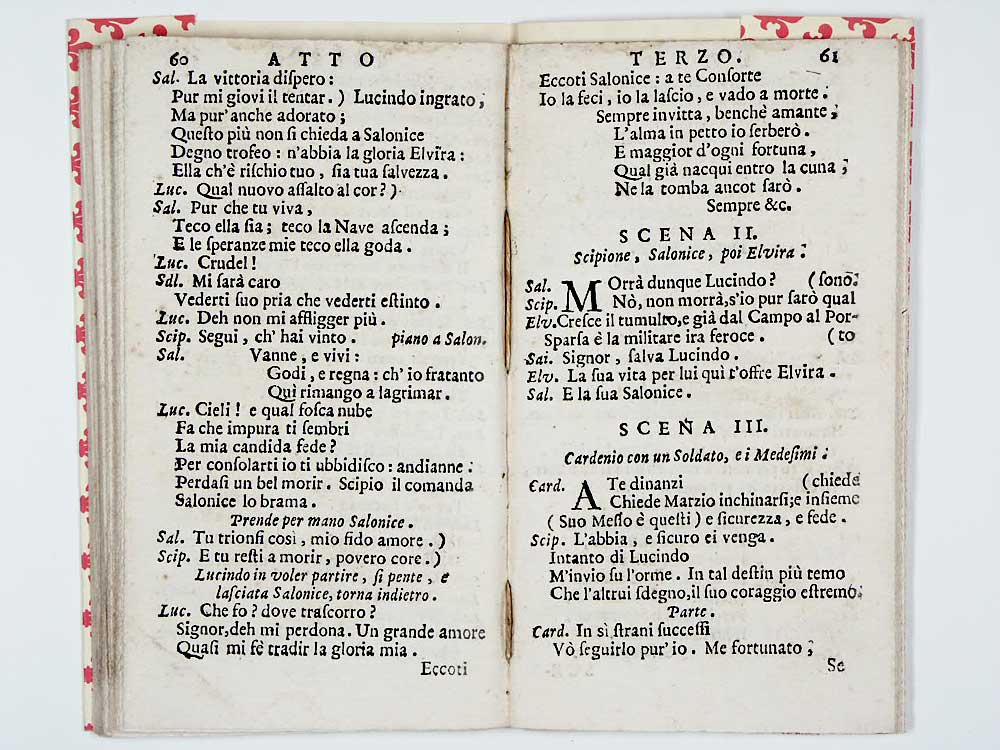 60 ATTO
Sal. La vittoria diſpero:
Pur mi giovi il tentar. ) Lucindo ingrato;
Ma pur' anche adorato;
Queſto più non ſi chieda a Salonice
Degno trofeo: n'abbia la gloria Elvira:
Ella ch'è riſchio tuo, ſia tua ſalvezza.
Luc. Qual nuovo aſſalto al cor?)
Sal. Pur che tu viva,
Teco ella ſia; teco la Nave aſcenda;
E le ſperanze mie teco ella goda.
Luc. Crudel!
Sdl. Mi ſarà caro
Vederti ſuo pria che vederti eſtinto.
Luc. Deh non mi affligger più.
Scip. Segui, ch' hai vinto. piano a Salon.
Sal. Vanne, e vivi:
Godi, e regna: ch' io fratanto
Quì rimango a lagrimar.
Luc. Cieli! e qual foſca nube
Fa che impura ti ſembri
La mia candida fede?
Per conſolarti io ti ubbidiſco: andianne.
Perdaſi un bel morir. Scipio il comanda
Salonice lo brama.
Prende per mano Salonice.
Sal. Tu trionfi così, mio fido amore.)
Scip. E tu reſti a morir, povero core.)
Lucindo in voler partire, ſi pente, e
laſciata Salonice, torna indietro.
Luc. Che fo? dove traſcorro?
Signor, deh mi perdona. Un grande amore
Quaſi mi fè tradir la gloria mia.
Eccoti
TERZO. 61
Eccoti Salonice: a te Conſorte
Io la feci, io la laſcio, e vado a morte.
Sempre invitta, benchè amante;
L'alma in petto io ſerberò.
E maggior d'ogni fortuna,
Qual già nacqui entro la cuna;
Ne la tomba ancot ſarò.
Sempre &c.
SCENA II.
Scipione, Salonice, poi Elvira.
Sal. MOrrà dunque Lucindo? (ſono.
Scip. Nò, non morrà, s'io pur ſarò qual
Elv. Creſce il tumulto, e già dal Campo al Por-
Sparſa è la militare ira feroce. (to
Sai. Signor, ſalva Lucindo.
Elv. La ſua vita per lui quì t'offre Elvira.
Sal. E la ſua Salonice.
SCENA III.
Cardenio con un Soldato, e i Medeſimi.
Card. ATe dinanzi (chiede
Chiede Marzio inchinarſi; e inſieme
(Suo Meſſo è queſti) e ſicurezza, e fede.
Scip. L'abbia, e ſicuro ei venga.
Intanto di Lucindo
M'invio ſu l'orme. In tal deſtin più temo
Che l'altrui ſdegno, il ſuo coraggio eſtremo.
Parte.
Card. In sì ſtrani ſucceſſi
Vò ſeguirlo pur' io. Me fortunato;
Se